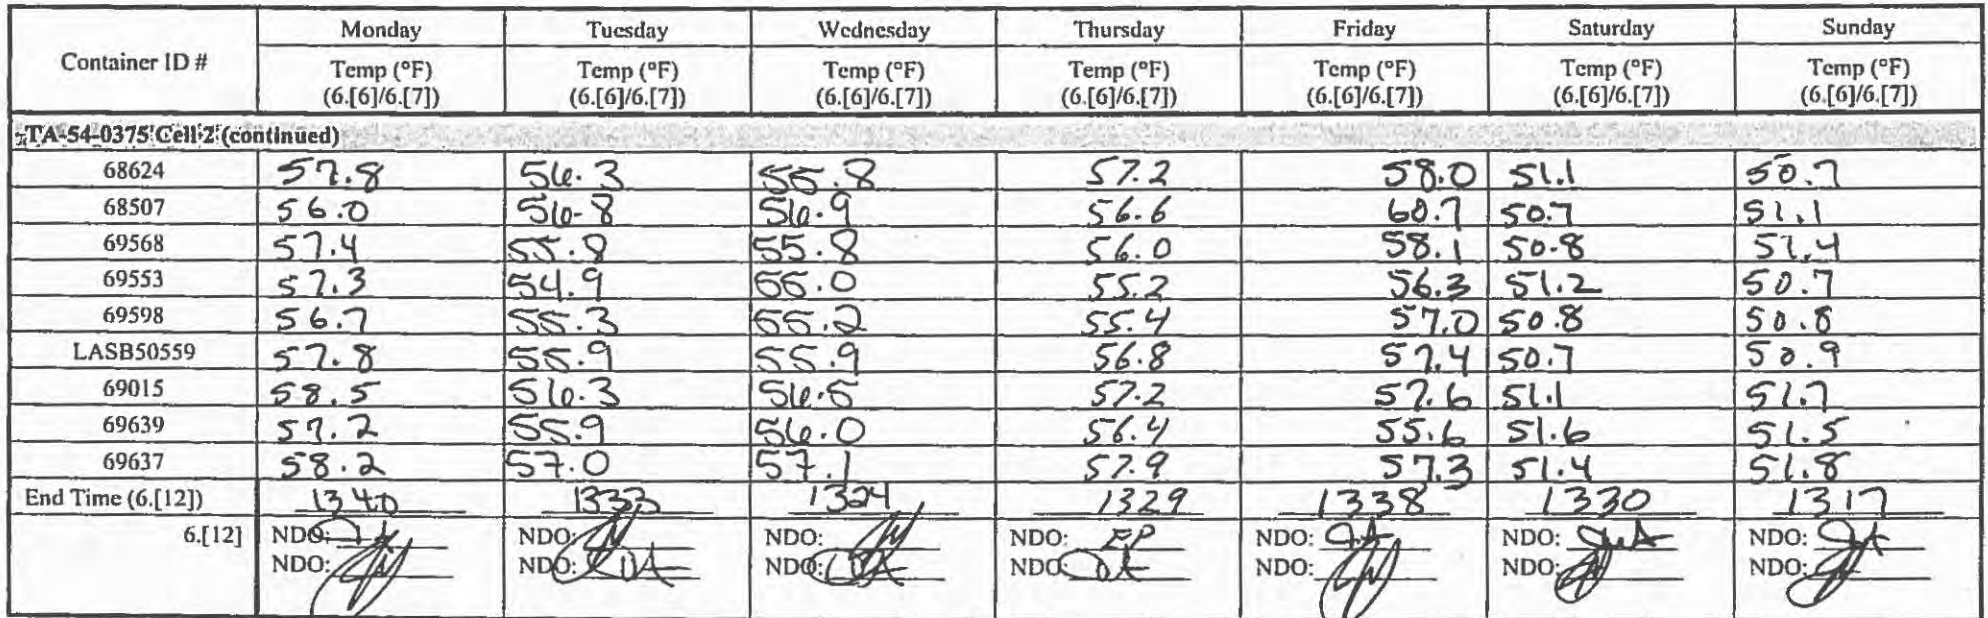 Container ID # Monday Tuesday Wednesday Thursday Friday Saturday Sunday
Temp (°F) Temp (°F) Temp (°F) Temp (°F) Temp (°F) Temp (°F) Temp (°F)
(6.[6]/6.[7]) (6.[6]/6.[7]) (6.[6]/6.[7]) (6.[6]/6.[7]) (6.[6]/6.[7]) (6.[6]/6.[7]) (6.[6]/6.[7])
TA-54-0375 Cell 2 (continued)
68624 57.8 56.3 55.8 57.2 58.0 51.1 50.7
68507 56.0 56.8 56.9 56.6 60.7 50.7 51.1
69568 57.4 55.8 55.8 56.0 58.1 50.8 51.4
69553 57.3 54.9 55.0 55.2 56.3 51.2 50.7
69598 56.7 55.3 55.2 55.4 57.0 50.8 50.8
LASB50559 57.8 55.9 55.9 56.8 57.4 50.7 50.9
69015 58.5 56.3 56.5 57.2 57.6 51.1 51.7
69639 57.2 55.9 56.0 56.4 55.6 51.6 51.5
69637 58.2 57.0 57.1 57.9 57.3 51.4 51.8
End Time (6.[12]) 1340 1333 1324 1329 1338 1330 1317
6.[12] NDO: NDO: NDO: NDO: EP NDO: NDO: NDO:
NDO: NDO: NDO: NDO: NDO: NDO: NDO: